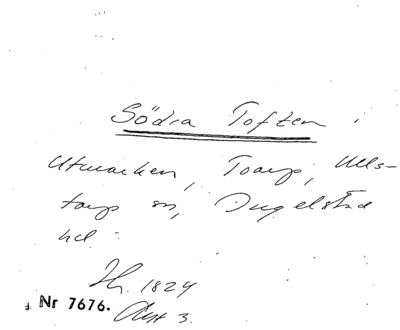 Södra Toften i
Utmarken, Toarp, Ulls-
torps sn, Ingelstad
hd.
Jh. 1824
Nr 7676. Akt 3.